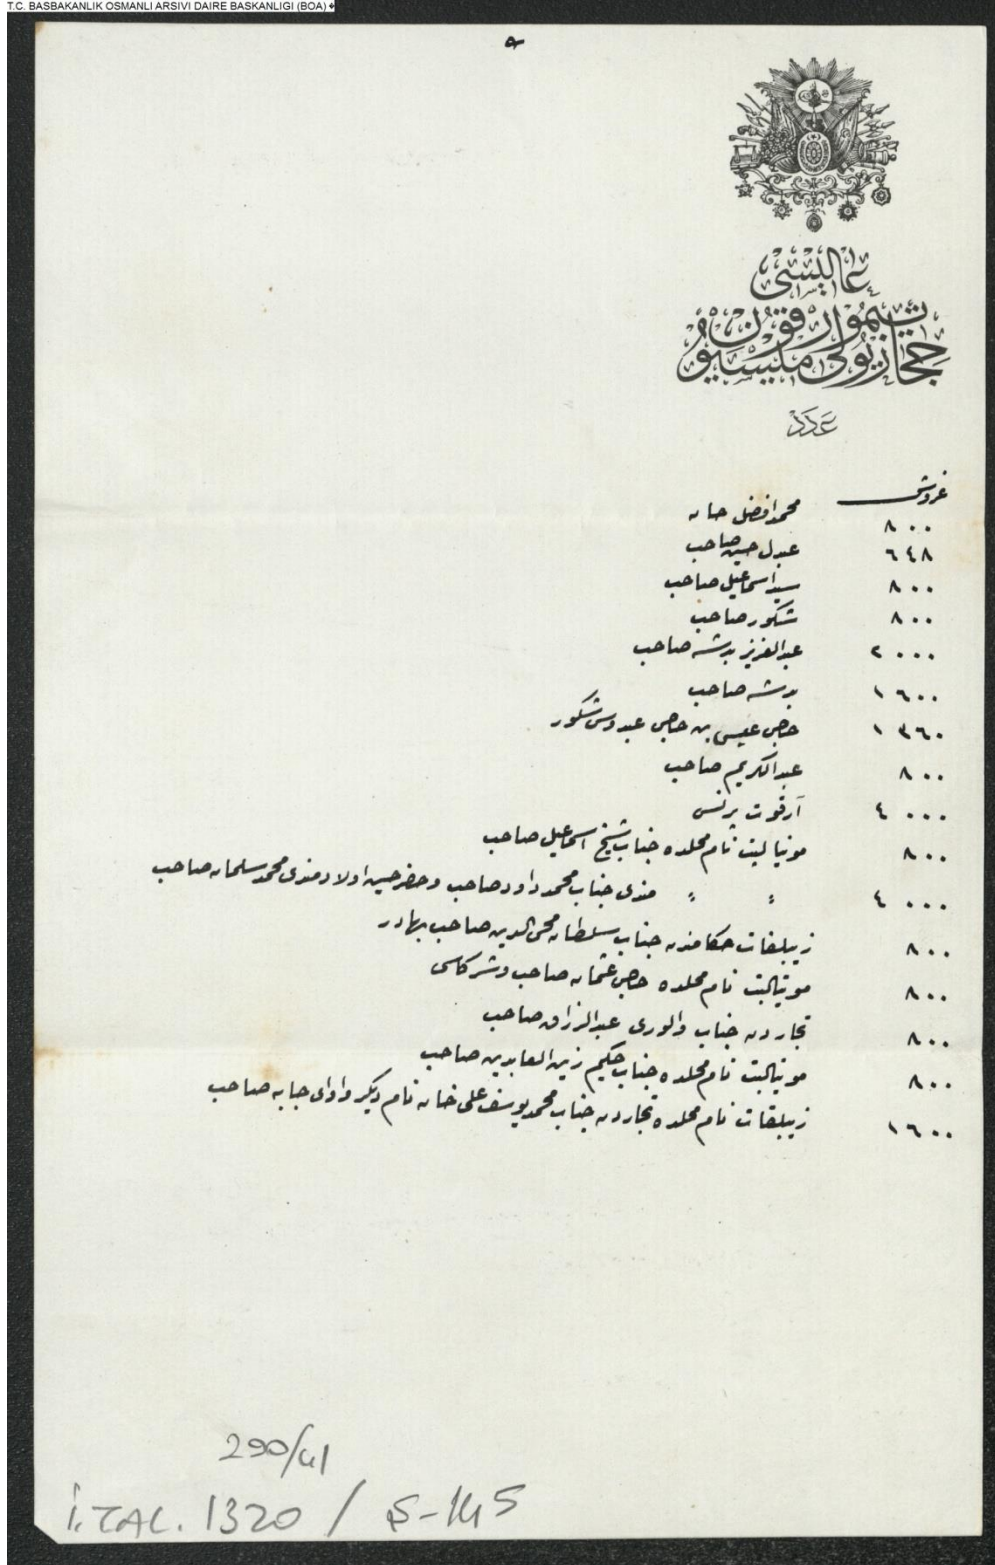 T.C. BASBAKANLIK OSMANLI ARSIVI DAIRE BASKANLIGI (BOA)
حجاز تيمور يولى قومسيون عاليسى
عدد
غروش
٨٠٠ محمد افضل خان
٦٤٨ عبدل حسين صاحب
٨٠٠ سيد اسماعيل صاحب
٨٠٠ شكور صاحب
٢٠٠٠ عبدالعزيز بدشه صاحب
١٦٠٠ بدشه صاحب
١٣٦٠ حاجى عيسى بن حاجى عبدوس شكور
٨٠٠ عبدالكريم صاحب
٤٠٠٠ آرقوت پرنس
٨٠٠ نام محلده جناب شيخ اسماعيل صاحب
٤٠٠٠ " " جناب محمد داود صاحب و حضر حسين اولاد محمد سلمان صاحب
٨٠٠ جناب سلطان محى الدين صاحب بهادر
٨٠٠ نام محلده حاجى عثمان صاحب و شركاسى
٨٠٠ تجاردن جناب عبدالرزاق صاحب
٨٠٠ نام محلده جناب حكيم زين العابدين صاحب
١٦٠٠ نام محلده تجاردن جناب محمد يوسف على خان نام ديكر صاحب
290/41
İ.TAL. 1320 / Ş-145